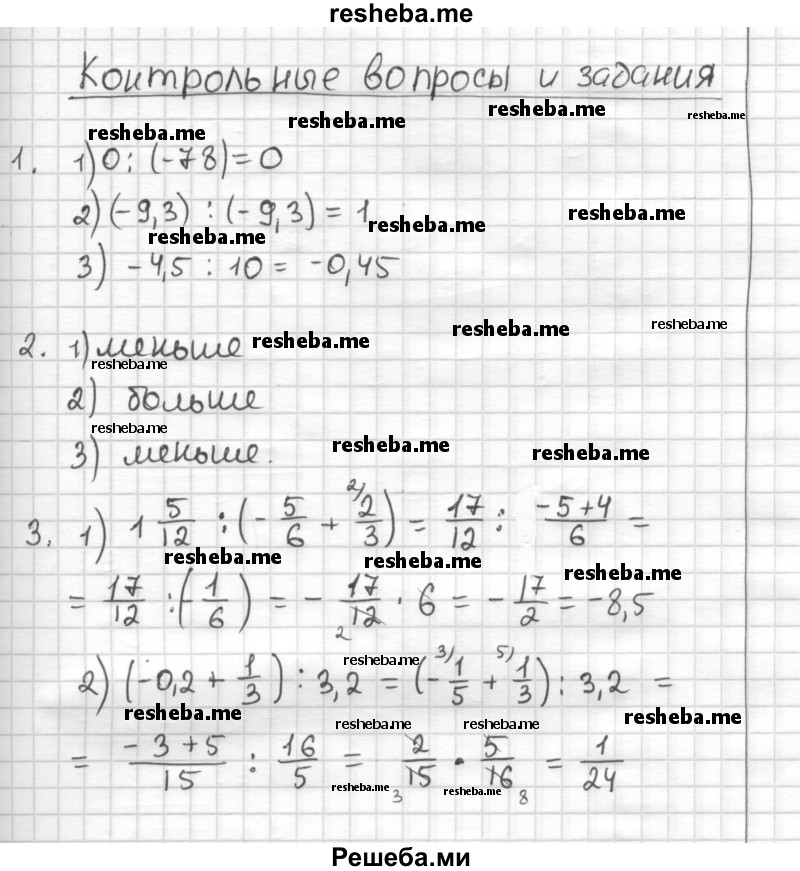 resheba.me
Контрольные вопросы и задания
resheba.me resheba.me resheba.me resheba.me
1. 1) 0 : (-78) = 0
2) (-9,3) : (-9,3) = 1
resheba.me resheba.me resheba.me
3) -4,5 : 10 = -0,45
2. 1) меньше
resheba.me resheba.me resheba.me
resheba.me
2) больше
resheba.me
3) меньше.
resheba.me resheba.me
3. 1) 1 5/12 : (-5/6 + 2)2/3) = 17/12 : (-5+4)/6 =
resheba.me resheba.me resheba.me
= 17/12 : (-1/6) = - 17/12 2 · 6 = - 17/2 = -8,5
2) (-0,2 + 1/3) : 3,2 = (- 3)1/5 + 5)1/3) : 3,2 =
resheba.me
resheba.me resheba.me resheba.me resheba.me
= (-3+5)/15 : 16/5 = 2/15 3 · 5/16 8 = 1/24
resheba.me resheba.me
Решеба.ми